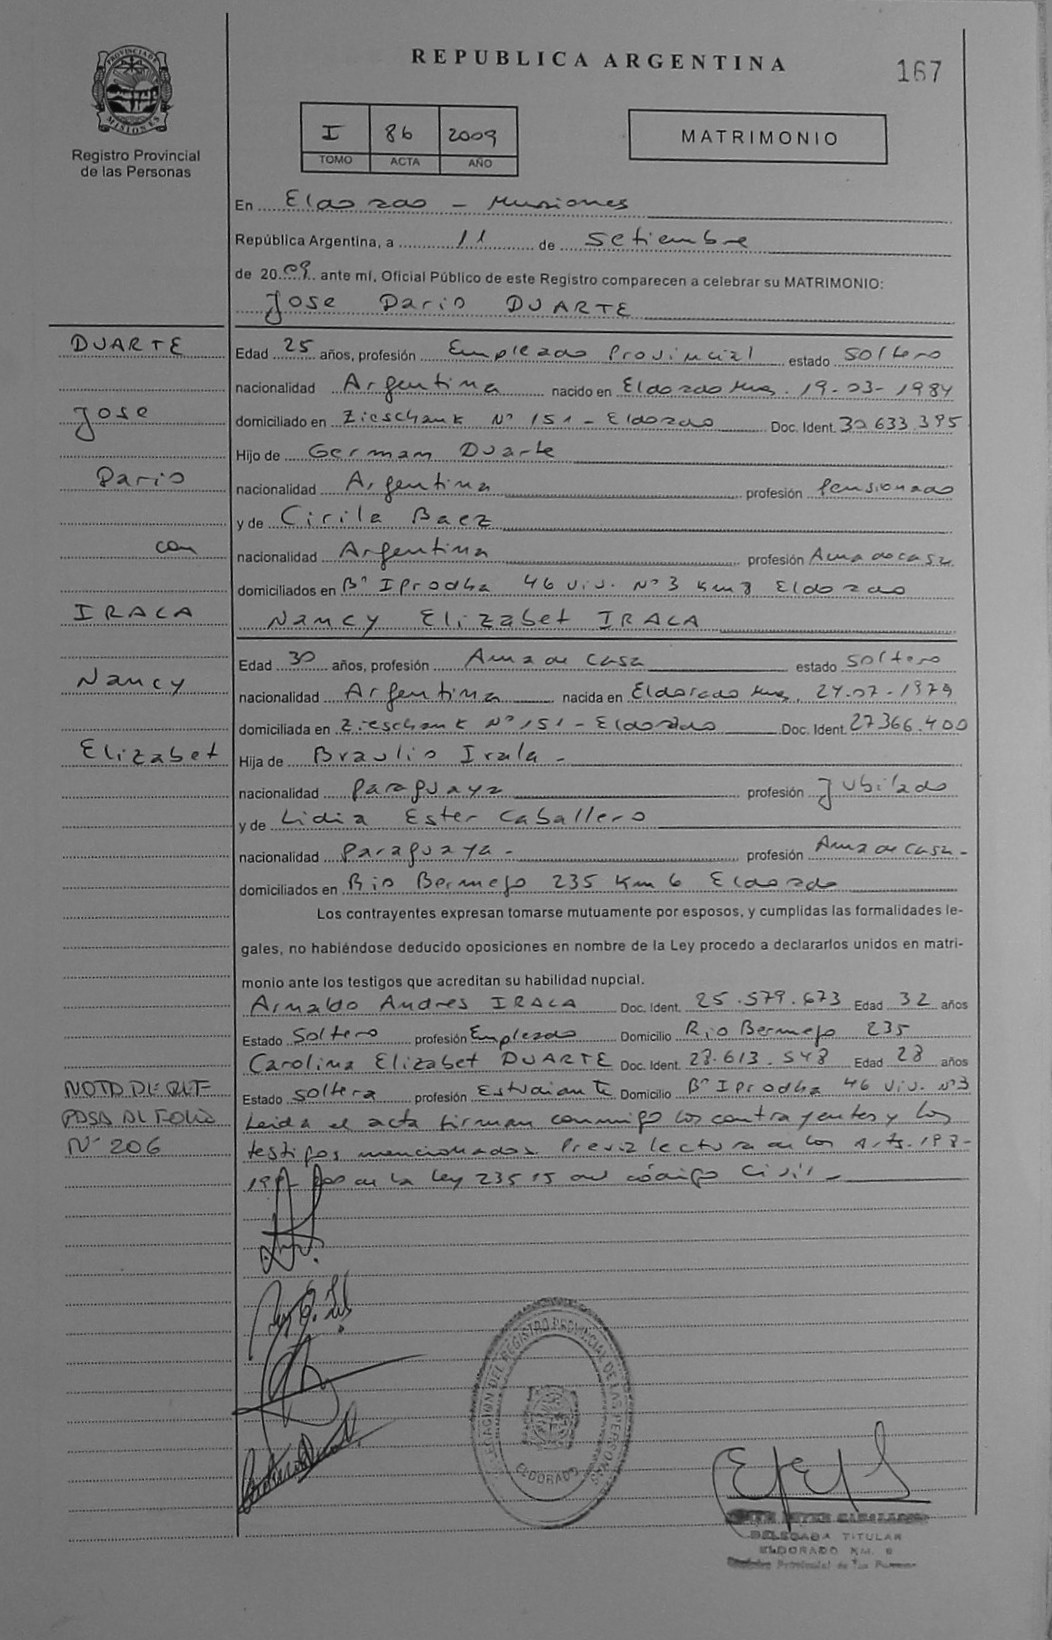 REPUBLICA ARGENTINA
167
PROVINCIA DE MISIONES
Registro Provincial
de las Personas
I 86 2009
TOMO ACTA AÑO
MATRIMONIO
En Eldorado - Misiones
República Argentina, a 11 de Setiembre
de 20 09 ante mí, Oficial Público de este Registro comparecen a celebrar su MATRIMONIO:
Jose Dario DUARTE
DUARTE
Jose
Dario
con
IRALA
Nancy
Elizabet
Edad 25 años, profesión Empleado Provincial estado Soltero
nacionalidad Argentina nacido en Eldorado Mnes. 19-03-1984
domiciliado en Zieschank Nº 151 - Eldorado Doc. Ident. 30.633.395
Hijo de German Duarte
nacionalidad Argentina profesión Pensionado
y de Cirila Baez
nacionalidad Argentina profesión Ama de casa
domiciliados en Bº Iprodha 46 viv. Nº 3 Km 8 Eldorado
Nancy Elizabet IRALA
Edad 30 años, profesión Ama de Casa estado Soltero
nacionalidad Argentina nacida en Eldorado Mnes. 24-07-1979
domiciliada en Zieschank Nº 151 - Eldorado Doc. Ident. 27.366.400
Hija de Braulio Irala -
nacionalidad Paraguaya profesión Jubilado
y de Lidia Ester Caballero
nacionalidad Paraguaya - profesión Ama de Casa -
domiciliados en Rio Bermejo 235 Km 6 Eldorado
Los contrayentes expresan tomarse mutuamente por esposos, y cumplidas las formalidades le-
gales, no habiéndose deducido oposiciones en nombre de la Ley procedo a declararlos unidos en matri-
monio ante los testigos que acreditan su habilidad nupcial.
Arnaldo Andres IRALA Doc. Ident. 25.579.673 Edad 32 años
Estado Soltero profesión Empleado Domicilio Rio Bermejo 235
Carolina Elizabet DUARTE Doc. Ident. 28.613.548 Edad 28 años
Estado Soltera profesión Estudiante Domicilio Bº Iprodha 46 viv. Nº3
NOTA DE REF
PASA AL FOLIO
Nº 206
Leida el acta firman conmigo los contrayentes y los
testigos mencionados. Previa lectura de los Arts. 198-
199- 200 de la Ley 23515 del código Civil -
DELEGACION DEL REGISTRO PROVINCIAL DE LAS PERSONAS
ELDORADO
DELEGADA TITULAR
ELDORADO KM.
Registro Provincial de las Personas